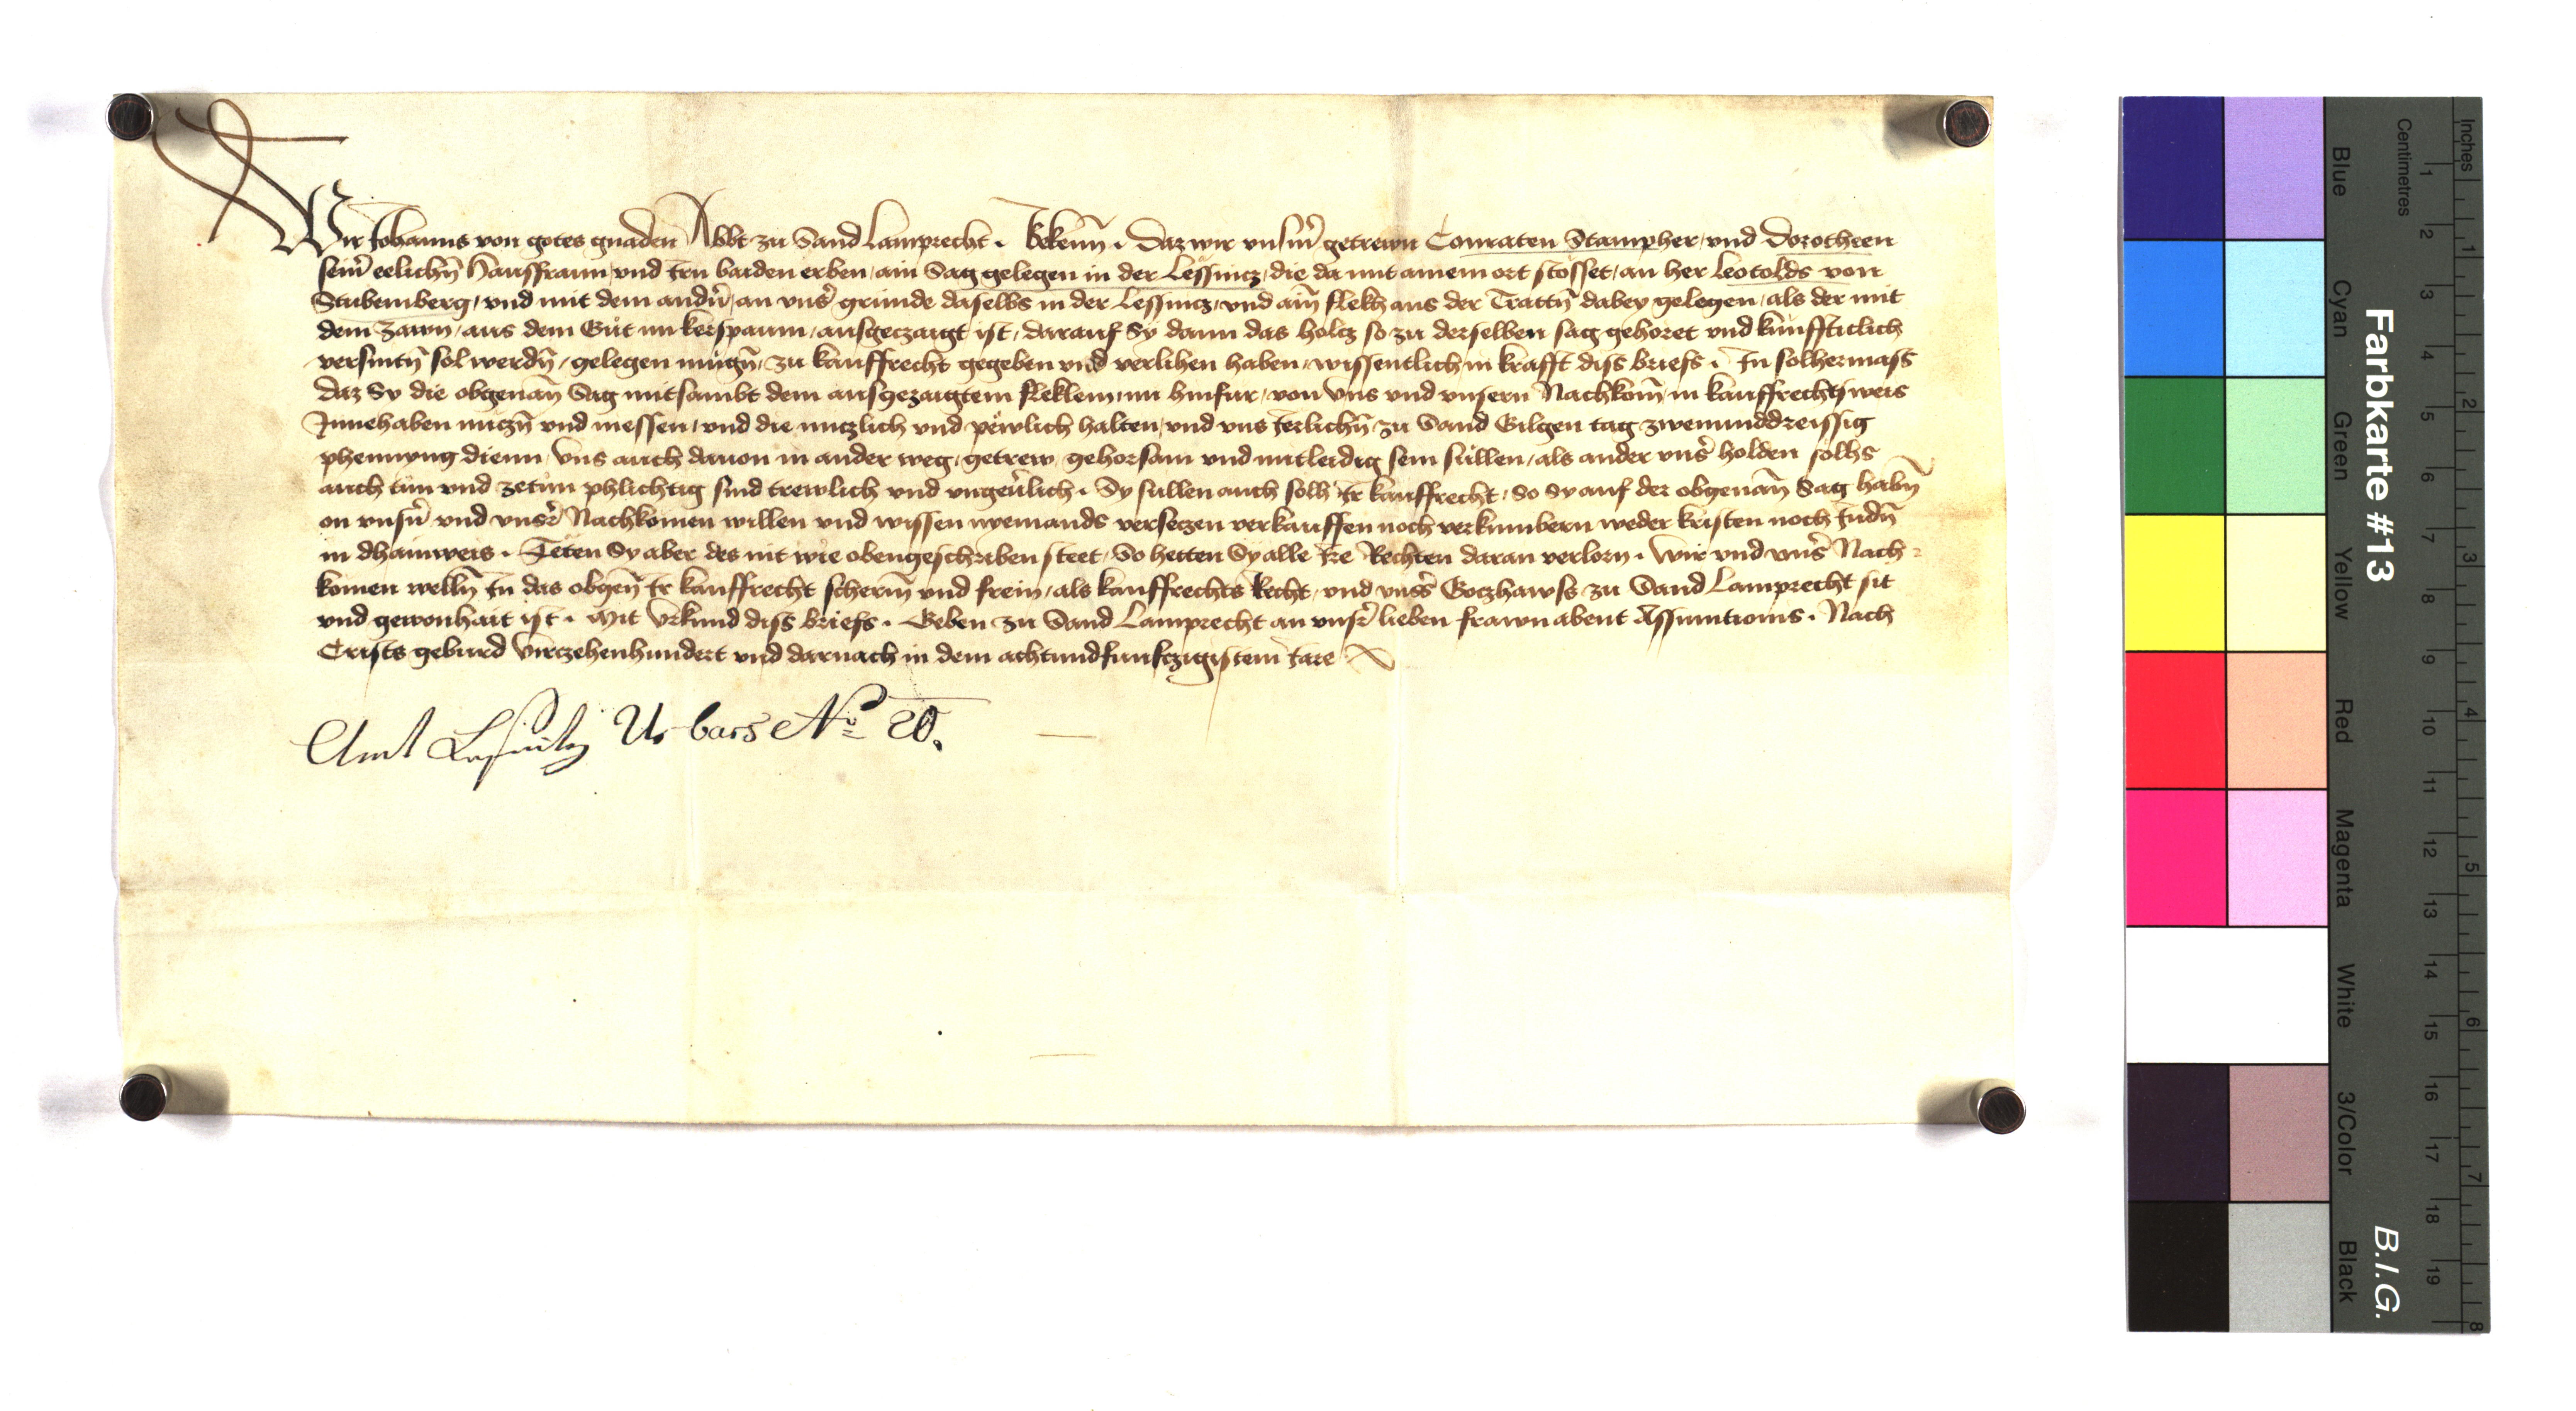 Wir Johanns von gotes gnaden Abbt zu Sand Lamprecht . Bekenn̄ . daz wir vnsīn getrewn Conraten Stampher, vnd Dorotheen
sein̄ eelichn̄ Hausfraun vnd irn baiden erben, ain Sag gelegen in der Lessincz, die da mit ainem ort stosset, an her Leotolds von
Stubemberg, vnd mit dem andn̄, an vns̄ gründe daselbs in der Lessincz, vnd ain̄ flekh aus der Trattn̄ dabey gelegen, als der mit
dem zawn, aus dem Güt im kerspaum, ausgeczaigt ist, darauf Sy dann das holcz so zu derselben sag gehoret vnd künfftiklich
versnitn̄ sol werdn̄, gelegen mügn̄, zu kauffrecht gegeben vnd verlihen haben, wissentlich in krafft diss briefs . In solhermass
daz Sy die obgenan̄ Sag mitsambt dem ausgezaigtem fleklein, nu hinfur, von vns vnd vnsern Nachkom̄, in kauffrechtsweis
Innehaben niczn̄ vnd niessen, vnd die nuczlich vnd pewlich halten, vnd vns Jerlichn̄ zu Sand Gilgen tag zwenunddreissig
phennyng dienn, Vns auch dauon in ander weg, getrew, gehorsam vnd mitleidig sein süllen, als ander vns̄ holden solhs
auch tün vnd zetün phlichtig sind trewlich vnd vngeūlich . Sy sullen auch solh Ir kauffrecht, So sy auf der obgenan̄ Sag habn̄
on vnsn̄ vnd vnsr̄ Nachkomen willen vnd wissen nyemands verseczen verkauffen noch verkumbern weder kristen noch Judn̄
in dhainweis . Teten Sy aber des nit wie obengeschriben steet, So hetten Sy alle Ire Rechten daran verlorn . Wir vnd vns̄ Nach-
komen welln̄ In das obgen̄ Ir kauffrecht scherm̄ vnd frein, als kauffrechts Recht, vnd vnss̄ Goczhawss zu Sand Lamprecht sit
vnd gewonhait ist . Mit Vrkund diss briefs . Geben zu Sand Lamprecht an vnsr̄ lieben frawn abent Assumtionis . Nach
Crists geburd Virczehenhundert vnd darnach in dem achtundfunfczigistem Jare
Amt Lessnitz Urbars No 20.
Farbkarte #13
B.I.G.
Inches 1 2 3 4 5 6 7 8
Centimetres 1 2 3 4 5 6 7 8 9 10 11 12 13 14 15 16 17 18 19
Blue Cyan Green Yellow Red Magenta White 3/Color Black